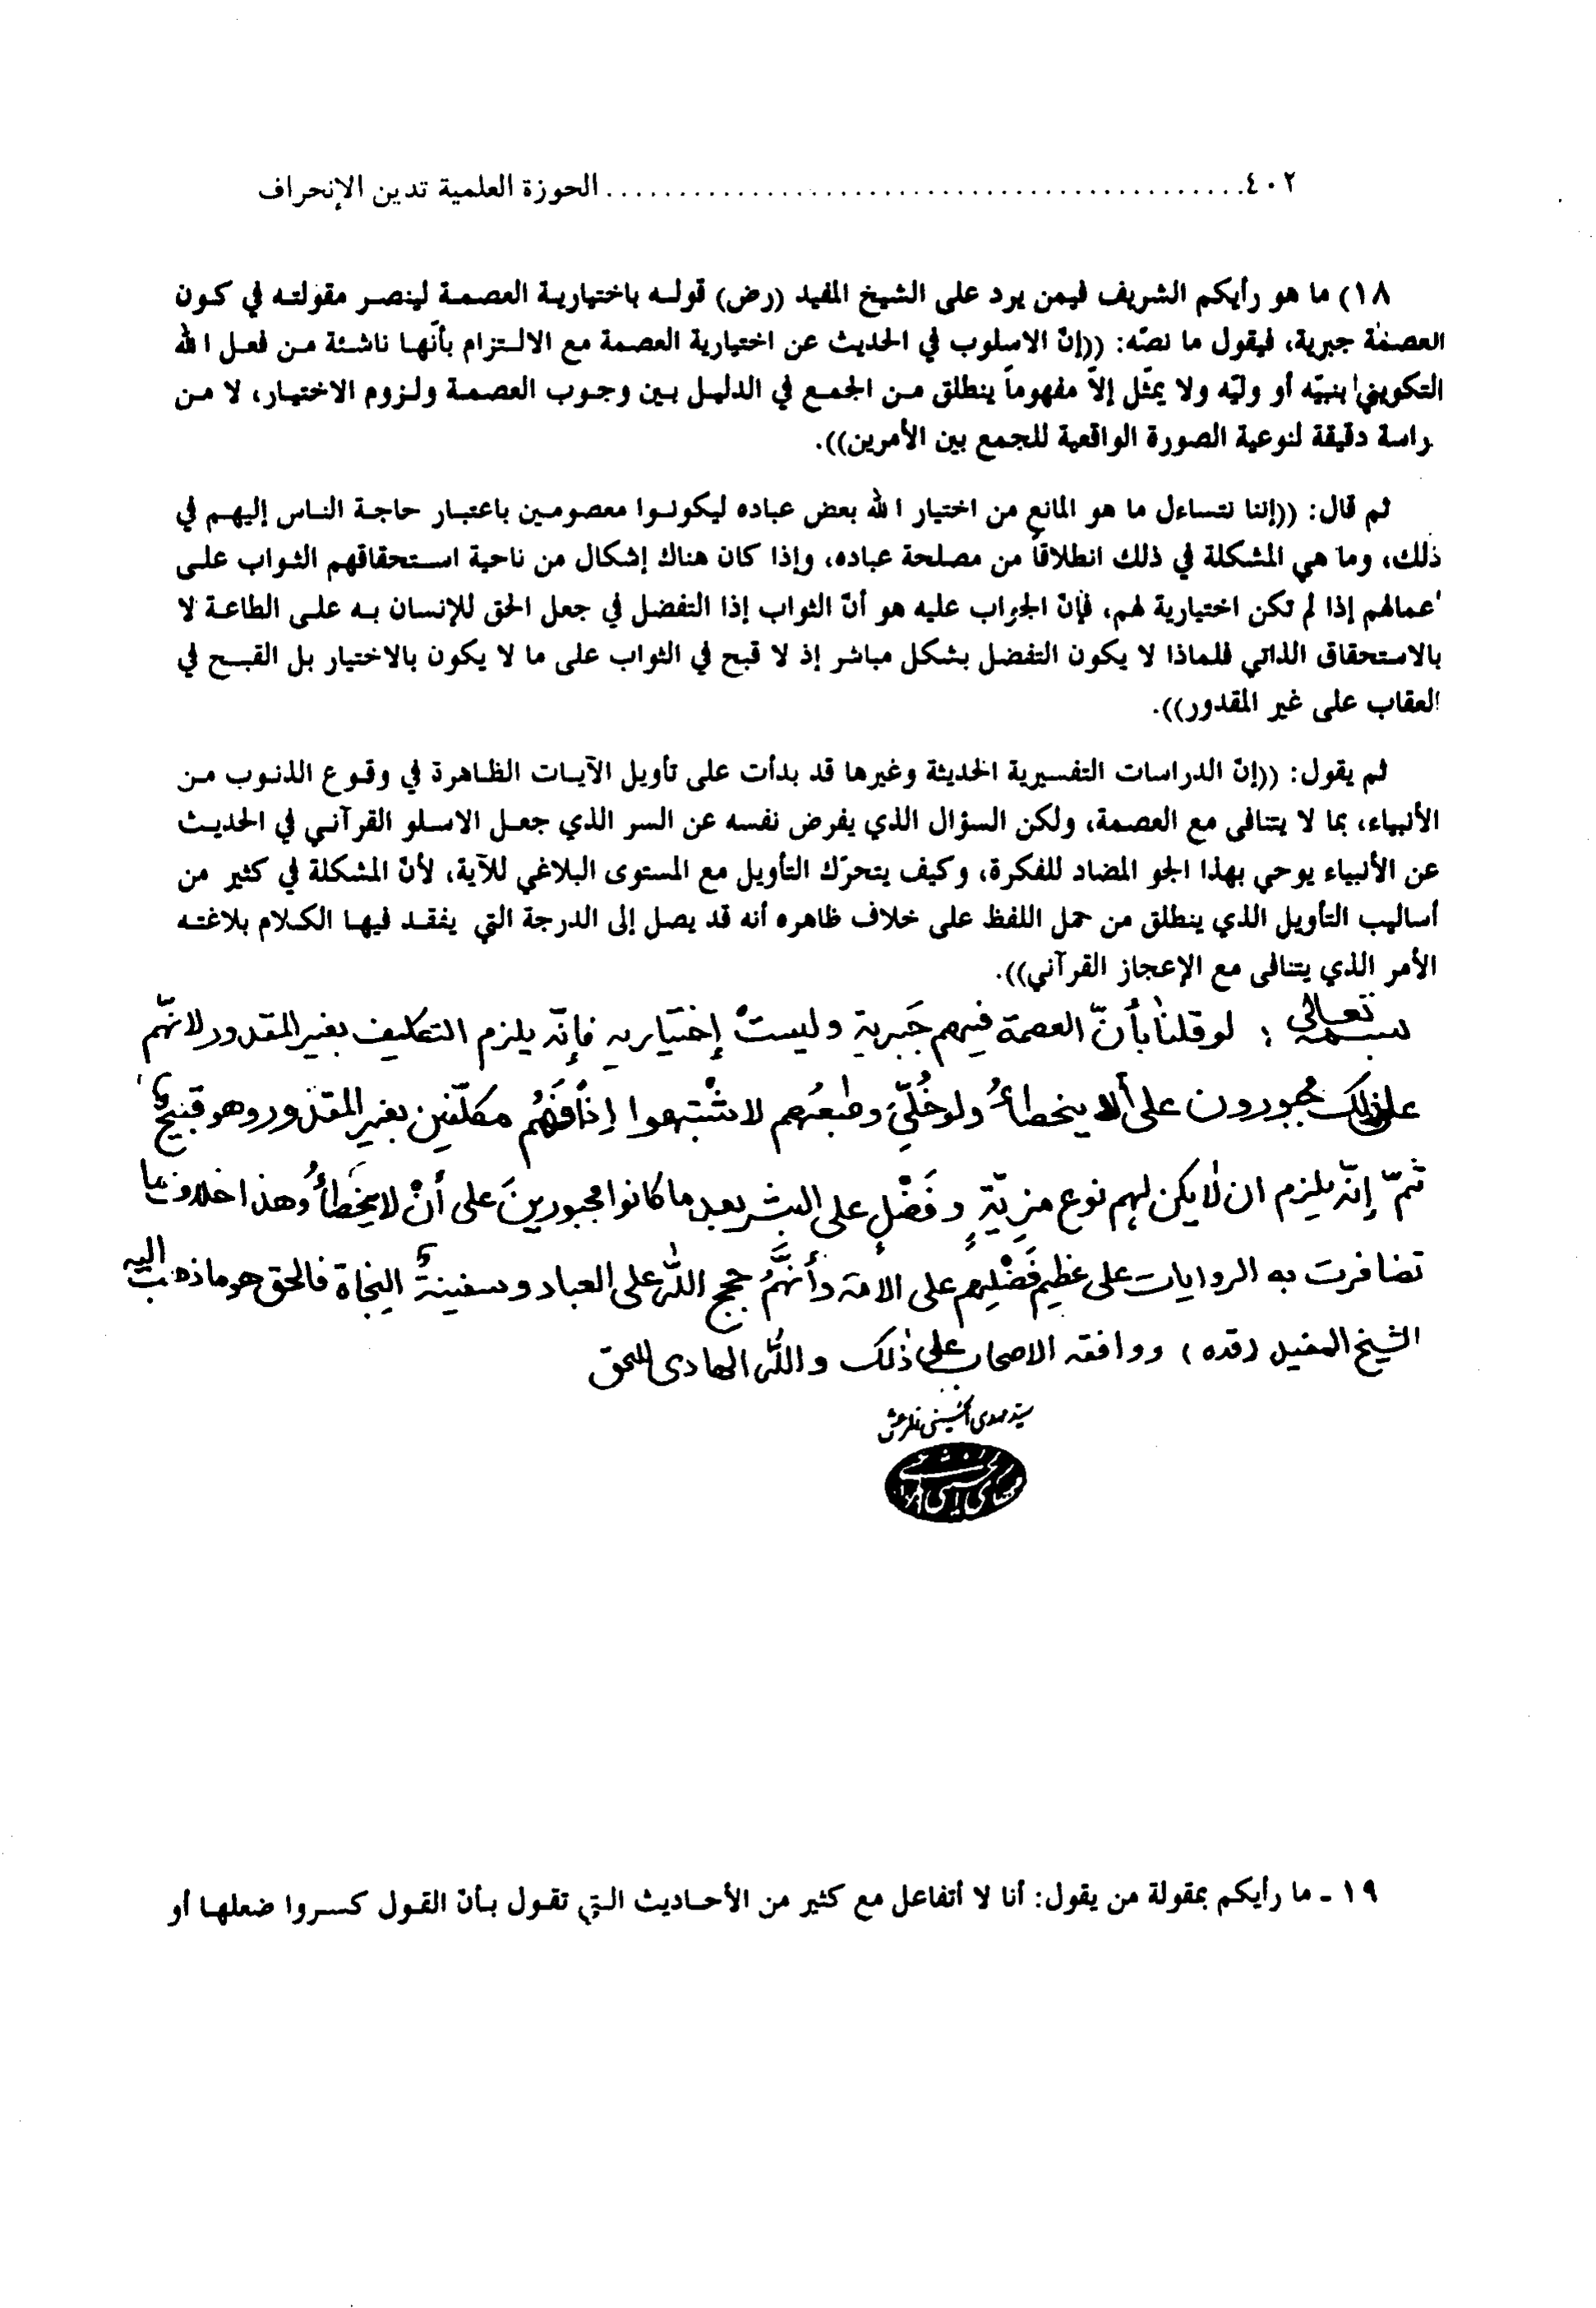 ٤٠٢ ............................................ الحوزة العلمية تدين الإنحراف
١٨) ما هو رأيكم الشريف فيمن يرد على الشيخ المفيد (رض) قوله باختيارية العصمة لينصر مقولته في كون
العصمة جبرية، فيقول ما نصّه: ((إنّ الاسلوب في الحديث عن اختيارية العصمة مع الالتزام بأنّها ناشئة من فعل الله
التكويني بنبيّه أو وليّه ولا يمثّل إلاّ مفهوماً ينطلق من الجمع في الدليل بين وجوب العصمة ولزوم الاختيار، لا من
راسة دقيقة لنوعية الصورة الواقعية للجمع بين الأمرين)).
ثم قال: ((إننا نتساءل ما هو المانع من اختيار الله بعض عباده ليكونوا معصومين باعتبار حاجة الناس إليهم في
ذلك، وما هي المشكلة في ذلك انطلاقاً من مصلحة عباده، وإذا كان هناك إشكال من ناحية استحقاقهم الثواب على
أعمالهم إذا لم تكن اختيارية لهم، فإنّ الجواب عليه هو أنّ الثواب إذا التفضل في جعل الحق للإنسان به على الطاعة لا
بالاستحقاق الذاتي فلماذا لا يكون التفضل بشكل مباشر إذ لا قبح في الثواب على ما لا يكون بالاختيار بل القبح في
العقاب على غير المقدور)).
ثم يقول: ((إنّ الدراسات التفسيرية الحديثة وغيرها قد بدأت على تأويل الآيات الظاهرة في وقوع الذنوب من
الأنبياء، بما لا يتنافى مع العصمة، ولكن السؤال الذي يفرض نفسه عن السر الذي جعل الاسلو القرآني في الحديث
عن الأنبياء يوحي بهذا الجو المضاد للفكرة، وكيف يتحرّك التأويل مع المستوى البلاغي للآية، لأنّ المشكلة في كثير من
أساليب التأويل الذي ينطلق من حمل اللفظ على خلاف ظاهره أنه قد يصل إلى الدرجة التي يفقد فيها الكلام بلاغته
الأمر الذي يتنافى مع الإعجاز القرآني)).
بسمه تعالى : لو قلنا بأنّ العصمة فيهم جَبرية وليستْ إختياريه فإنّه يلزم التكليف بغير المقدور لانهّم
على ذلك مجبورون على ألا يخطأُ ولو خُلّيَ وطبعَهم لاشْتبهوا إذاً فَهُم مكلّفين بغير المقدور وهو قبيحٌ
ثمّ إنّه يلزم ان لا يكن لهم نوع مزيّةٍ وفَضْلٍ على البشر بعد ما كانوا مجبورينَ على أنْ لا يخَطأُ وهذا خلاف ما
تضافرت به الروايات على عظيم فَضْلِهم على الامة وأنهَّمُ حجج اللّه على العباد وسفينةُ النجاة فالحق هو ما ذهب اليه
الشيخ المفيد (قده) ووافقه الاصحاب على ذلك واللّه الهادى للحق
سيد مهدى الحسينى
١٩ - ما رأيكم بمقولة من يقول: أنا لا أتفاعل مع كثير من الأحاديث التي تقول بأنّ القول كسروا ضعلها أو